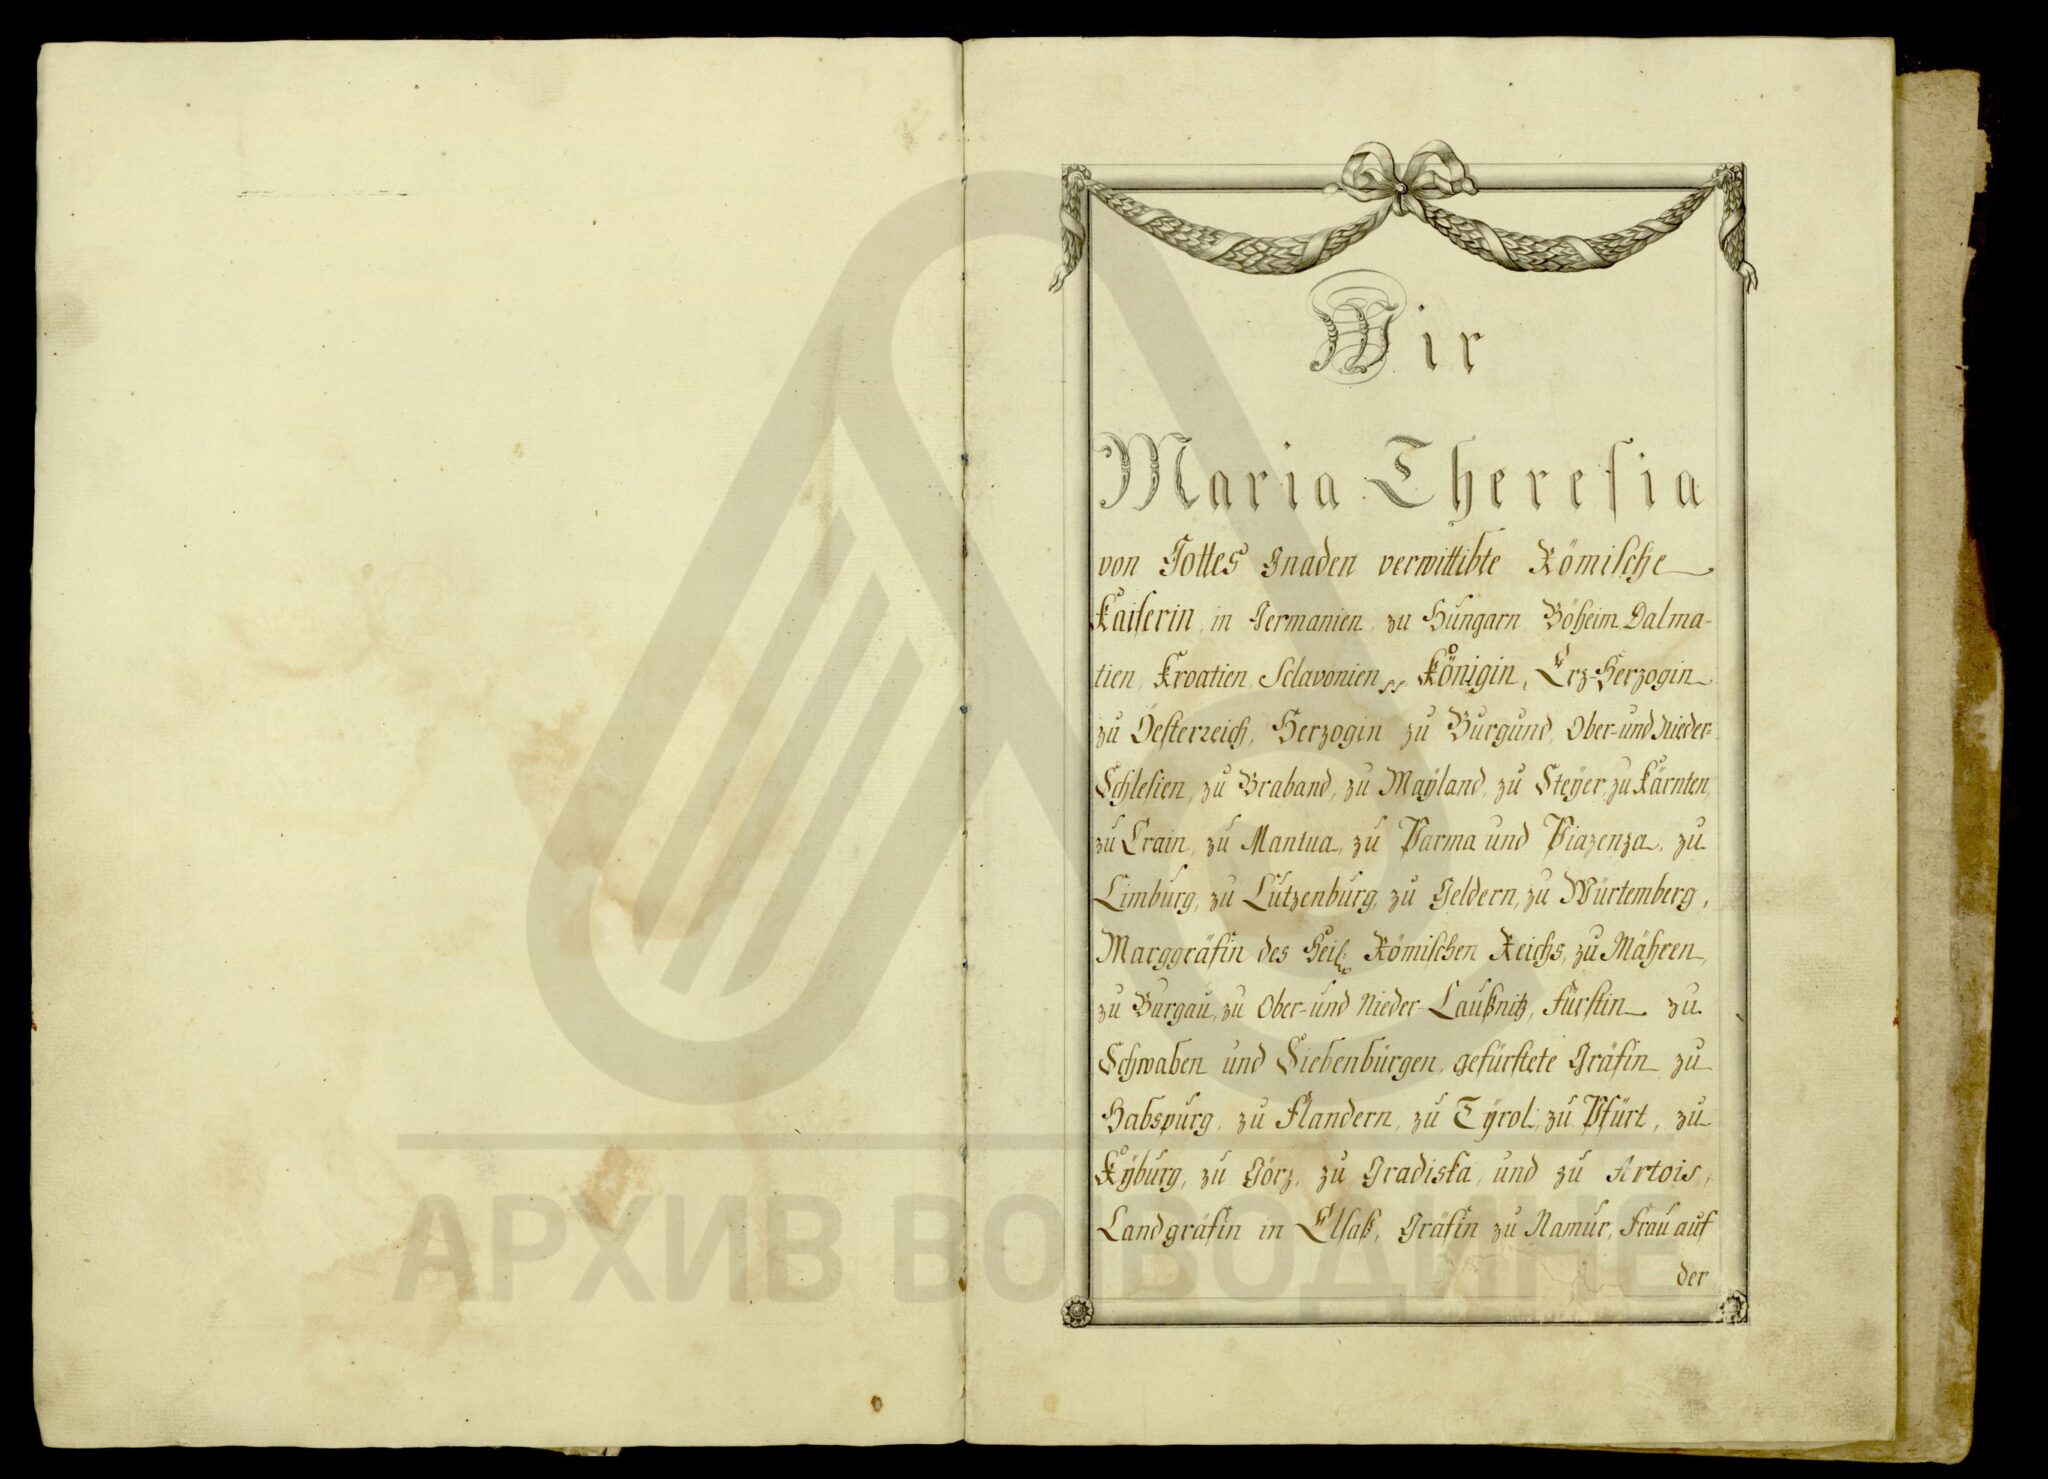 Wir
Maria Theresia
von Gottes Gnaden verwittibte Römische
Kaiserin, in Germanien, zu Hungarn, Böheim, Dalma-
tien, Kroatien, Sclavonien Königin, Erz-Herzogin
zu Oesterreich, Herzogin zu Burgund, Ober- und Nieder-
Schlesien, zu Braband, zu Mayland, zu Steÿer, zu Kärnten,
zu Crain, zu Mantua, zu Parma und Piazenza, zu
Limburg, zu Lutzenburg, zu Geldern, zu Würtemberg,
Marggräfin des Heil: Römischen Reichs, zu Mähren,
zu Burgau, zu Ober- und Nieder-Laußnitz, Fürstin zu
Schwaben und Siebenbürgen, gefürstete Gräfin zu
Habspurg, zu Flandern, zu Tÿrol, zu Pfürt, zu
Kÿburg, zu Görz, zu Gradiska, und zu Artois,
Landgräfin in Elsaß, Gräfin zu Namur, Frau auf
der
АРХИВ ВОЈВОДИНЕ